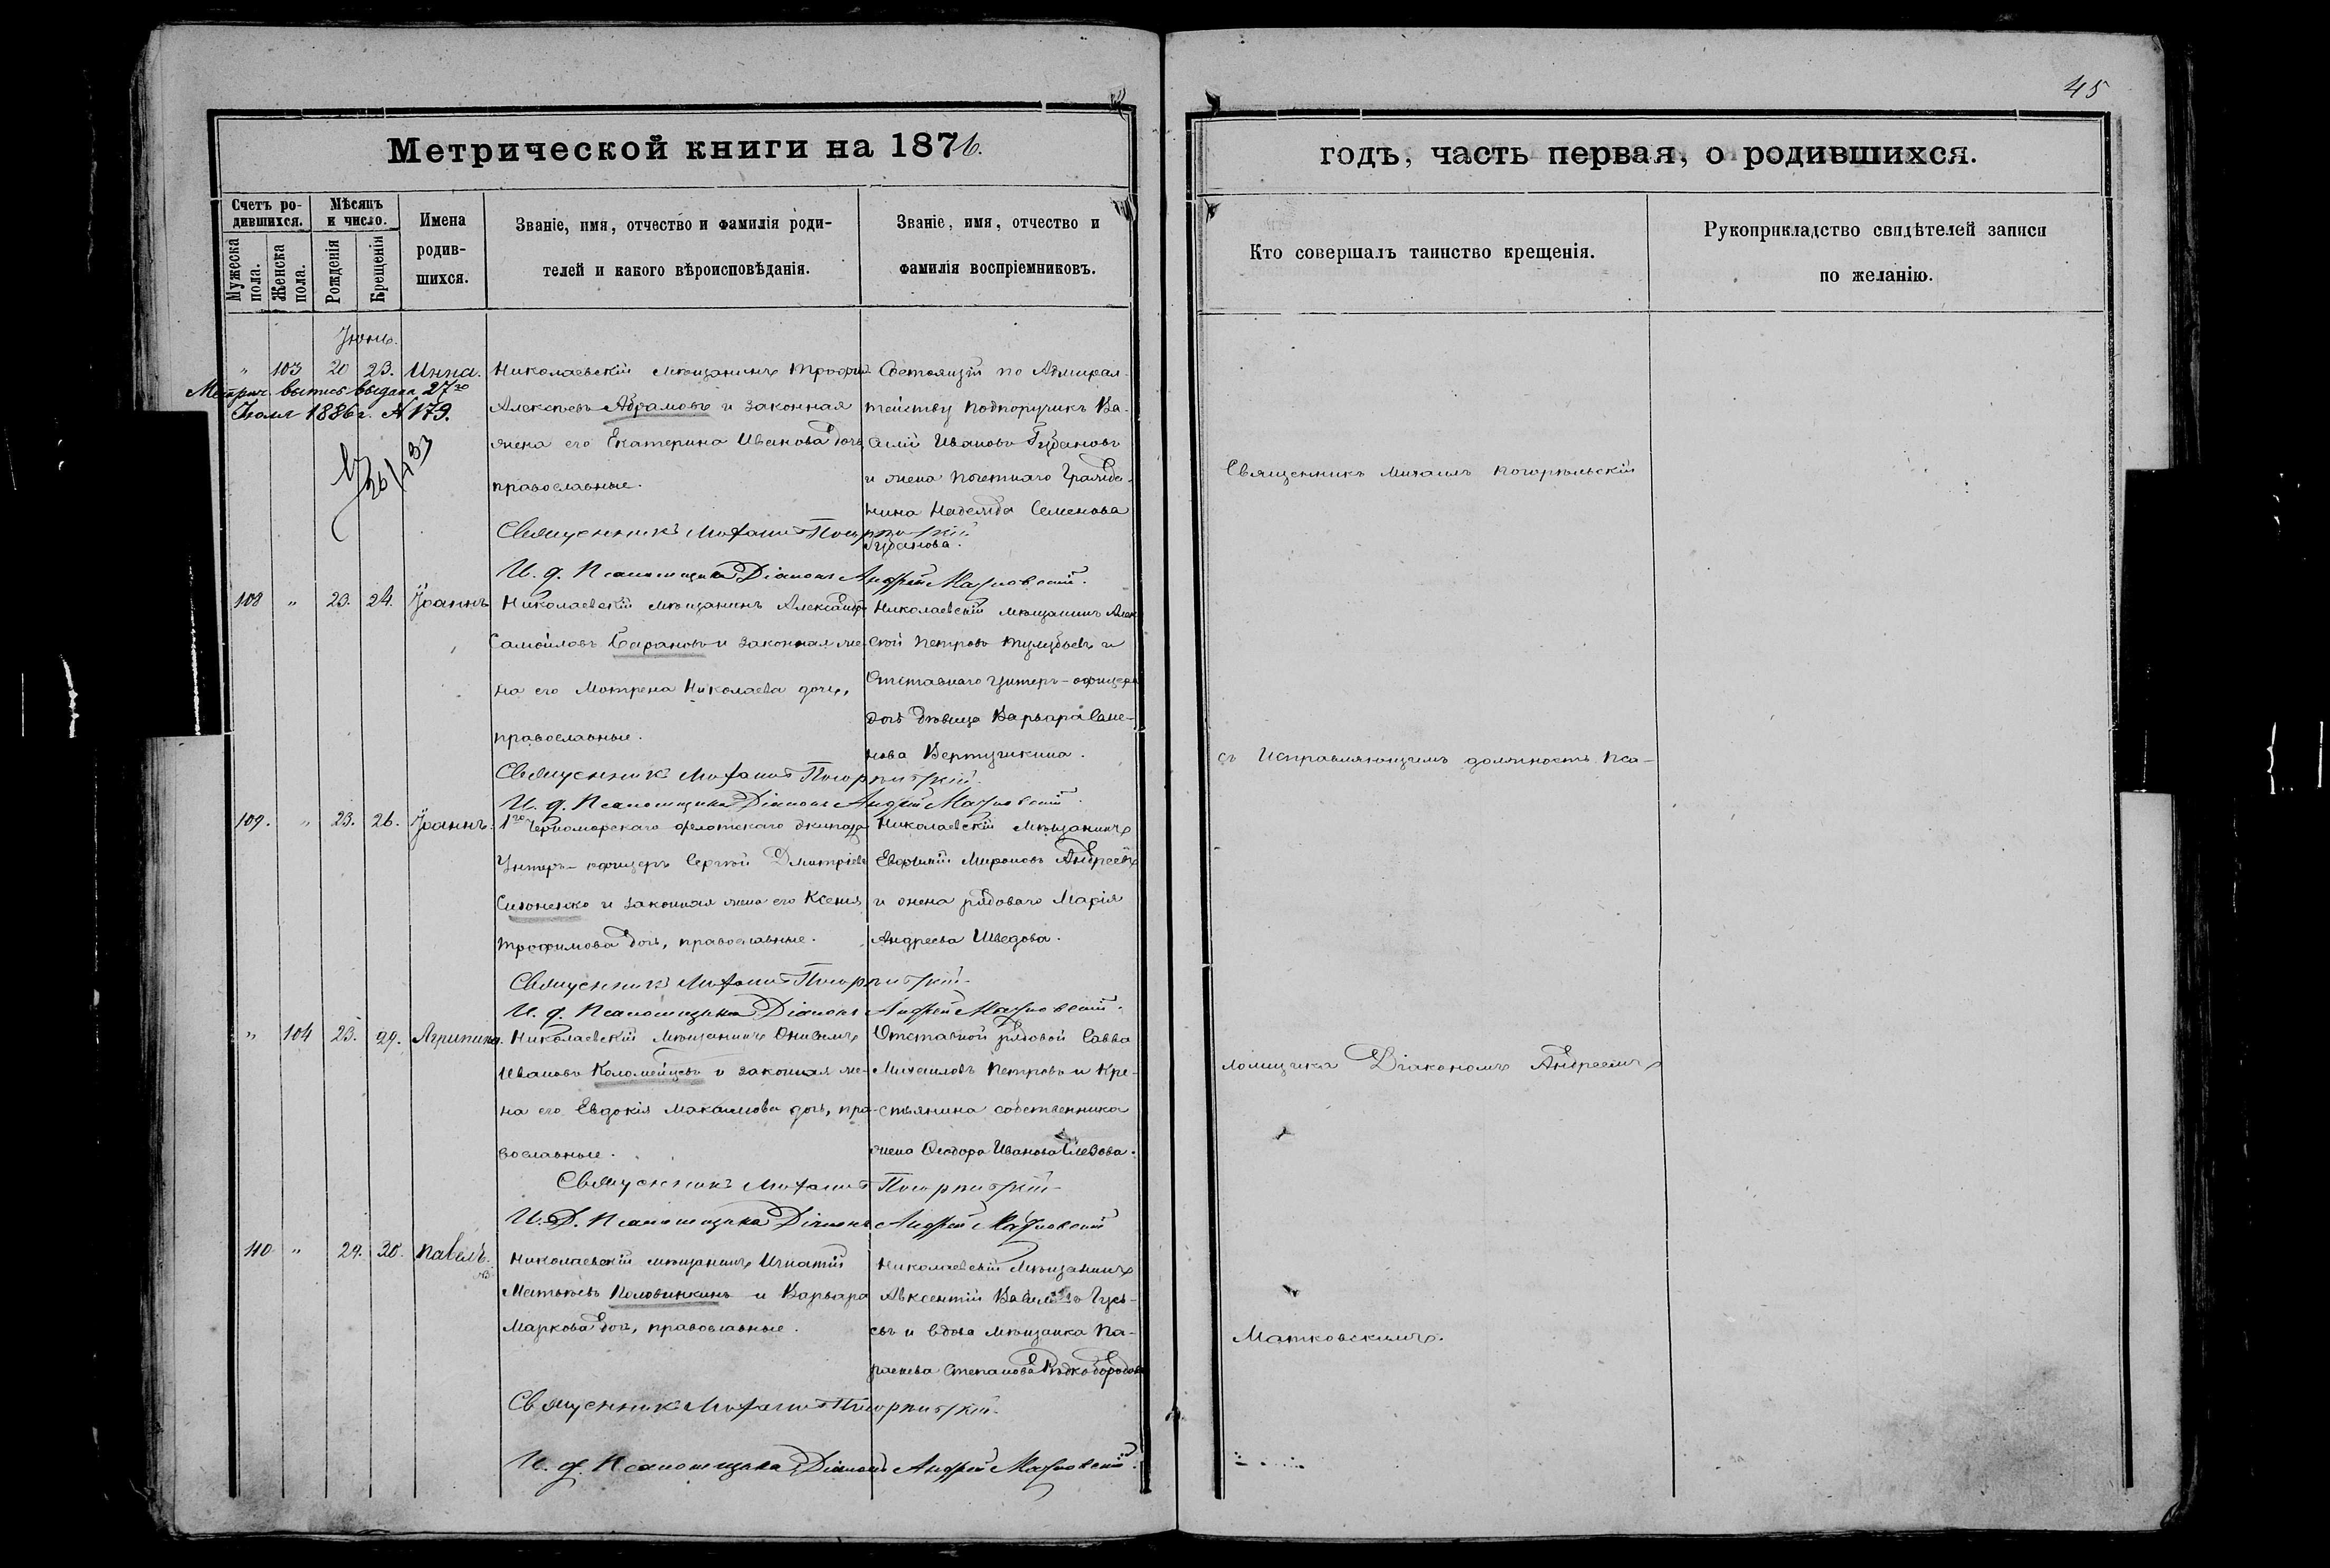 45
Метрической книги на 1876.
годъ, часть первая, о родившихся.
Счетъ ро-
дившихся.
Мужеска пола.
Женска пола.
Мѣсяцъ
и число.
Рожденія
Крещенія
Имена
родив-
шихся.
Званіе, имя, отчество и фамилія роди-
телей и какого вѣроисповѣданія.
Званіе, имя, отчество и
фамилія воспріемниковъ.
Кто совершалъ таинство крещенія.
Рукоприкладство свидѣтелей записи
по желанію.
Іюнь.
" 103 20 23. Инна.
Метрич. выпись выдана 27го
Іюля 1886 г. № 179.
Николаевскій мѣщанинъ Трофим
Алексѣевъ Абрамовъ и законная
жена его Екатерина Иванова дочь,
православные.
Состоящій по Адмирал-
тейству Подпоручикъ Ва-
силій Ивановъ Губановъ
и жена Почетнаго Гражда-
нина Надежда Семенова
Губанова.
Священникъ Михаилъ Погорѣльскій
И. д. Псаломщика Діаконъ Андрей Матковскій.
108 " 23. 24. Іоаннъ
Николаевскій мѣщанинъ Александръ
Самойловъ Барановъ и законная же-
на его Мотрена Николаева дочь,
православные.
Николаевскій мѣщанинъ Алек-
сѣй Петровъ Тулубьевъ и
Отставнаго Унтеръ-офицера
дочь дѣвица Варвара Саве-
нова Вертушкина.
Священникъ Михаилъ Погорѣльскій
И. д. Псаломщика Діаконъ Андрей Матковскій.
109. " 23. 26. Іоаннъ.
1го Черноморскаго флотскаго экипажа
Унтеръ-офицеръ Сергѣй Дмитріевъ
Симоненко и законная жена его Ксенія
Трофимова дочь, православные.
Николаевскій Мѣщанинъ
Евфимій Мироновъ Андреевъ
и жена рядоваго Марія
Андреева Шведова.
Священникъ Михаилъ Погорѣльскій
И. д. Псаломщика Діаконъ Андрей Матковскій.
" 104 23. 29. Агрипина.
Николаевскій Мѣщанинъ Онисимъ
Ивановъ Коломейцевъ и законная же-
на его Евдокія Максимова дочь, пра-
вославные.
Отставной рядовой Савва
Михаиловъ Петровъ и Кре-
стьянина собственника
жена Ѳеодора Иванова
Священникъ Михаилъ Погорѣльскій
И. Д. Псаломщика Діаконъ Андрей Матковскій
110 " 29. 30. Павелъ.
Николаевскій мѣщанинъ Игнатій
Матвѣевъ Половинкинъ и Варвара
Маркова дочь, православные.
Николаевскій Мѣщанинъ
Авксентій Гусь-
евъ и вдова мѣщанка Па-
раскева Степанова
Священникъ Михаилъ Погорѣльскій
И. д. Псаломщика Діаконъ Андрей Матковскій.
Священникъ Михаилъ Погорѣльскій
съ Исправляющимъ должность Пса-
ломщика Діакономъ Андреемъ
Матковскимъ.